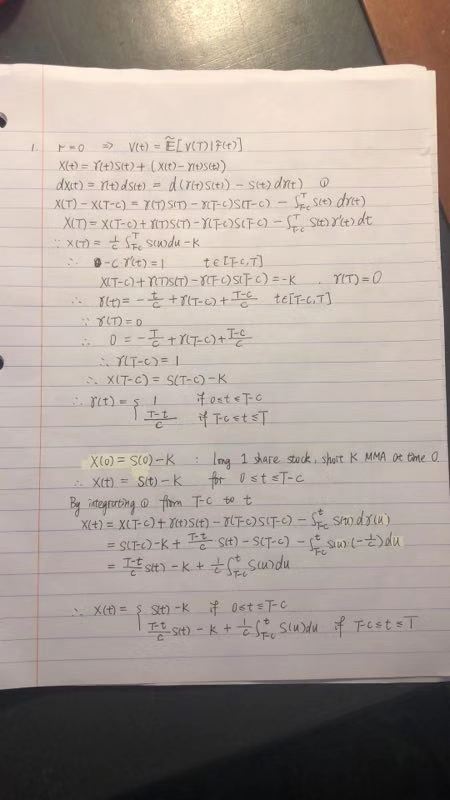 1. r=0 ⇒ V(t) = Ẽ[V(T)|F(t)]
X(t) = γ(t)S(t) + (X(t) - γ(t)S(t))
dX(t) = γ(t)dS(t) = d(γ(t)S(t)) - S(t)dγ(t) ①
X(T) - X(T-c) = γ(T)S(T) - γ(T-c)S(T-c) - ∫_{T-c}^T S(t)dγ(t)
X(T) = X(T-c) + γ(T)S(T) - γ(T-c)S(T-c) - ∫_{T-c}^T S(t)γ'(t)dt
∵ X(T) = 1/c ∫_{T-c}^T S(u)du - K
∴ -cγ'(t) = 1 t∈[T-c,T]
X(T-c) + γ(T)S(T) - γ(T-c)S(T-c) = -K . γ(T) = 0
∴ γ(t) = -t/c + γ(T-c) + (T-c)/c t∈[T-c,T]
∵ γ(T) = 0
∴ 0 = -T/c + γ(T-c) + (T-c)/c
∴ γ(T-c) = 1
∴ X(T-c) = S(T-c) - K
∴ γ(t) = { 1 if 0≤t≤T-c
(T-t)/c if T-c≤t≤T
X(0) = S(0) - K : long 1 share stock, short K MMA at time 0.
∴ X(t) = S(t) - K for 0≤t≤T-c
By integrating ① from T-c to t
X(t) = X(T-c) + γ(t)S(t) - γ(T-c)S(T-c) - ∫_{T-c}^t S(u)dγ(u)
= S(T-c) - K + (T-t)/c S(t) - S(T-c) - ∫_{T-c}^t S(u)·(-1/c)du
= (T-t)/c S(t) - K + 1/c ∫_{T-c}^t S(u)du
∴ X(t) = { S(t) - K if 0≤t≤T-c
(T-t)/c S(t) - K + 1/c ∫_{T-c}^t S(u)du if T-c≤t≤T